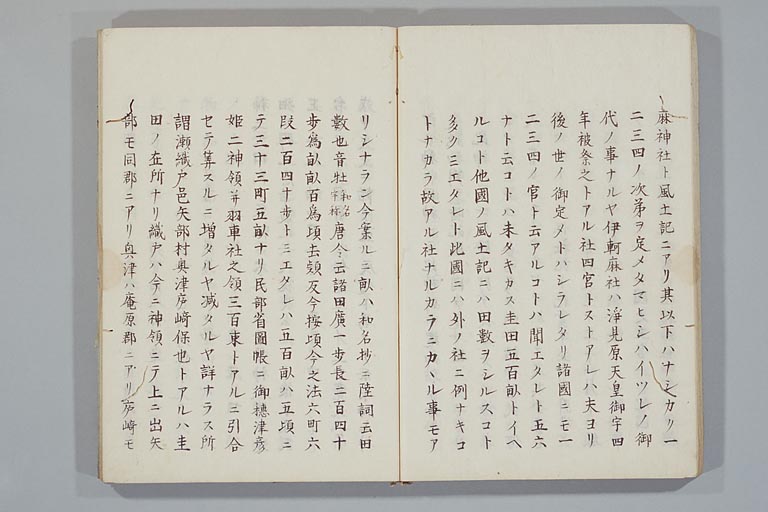 麻神社ト風土記ニアリ其以下ハナシカリ一
二三四ノ次第ヲ定メタマヒシハイツレノ御
代ノ事ナルヤ伊軻麻社ハ浄見原天皇御宇四
年被祭之トアル社四官トストアレハ夫ヨリ
後ノ世ノ御定メトハシラレタリ諸國ニモ一
二三四ノ官ト云アルコトハ聞エタレト五六
ナト云コトハ未タキカス圭田五百畝トイヘ
ルコト他國ノ風土記ニハ田數ヲシルスコト
多ク三エタレト此國ニハ外ノ社ニ例ナキコ
トナカラ故アル社ナルカラニカヽル事モア
リシナラン今案ルニ畝ハ和名抄ニ陸詞云田
數也音牡和名宇祢唐令云諸田廣一步長二百四十
步為畝畝百為頃去頻反今按頃今之法六町六
段二百四十步トミエタレハ五百畝ハ五頃ニ
テ三十三町五畝ナリ民部省圖帳ニ御穂津彦
姫二神領并羽車社之領三百束トアルニ引合
セテ算スルニ増タルヤ減タルヤ詳ナラス所
謂瀬織戸邑矢部村奥津庐﨑保也トアルハ圭
田ノ在所ナリ織戸ハ今ニ神領ニテ上ニ出矢
部モ同郡ニアリ奥津ハ庵原郡ニアリ庐﨑モ